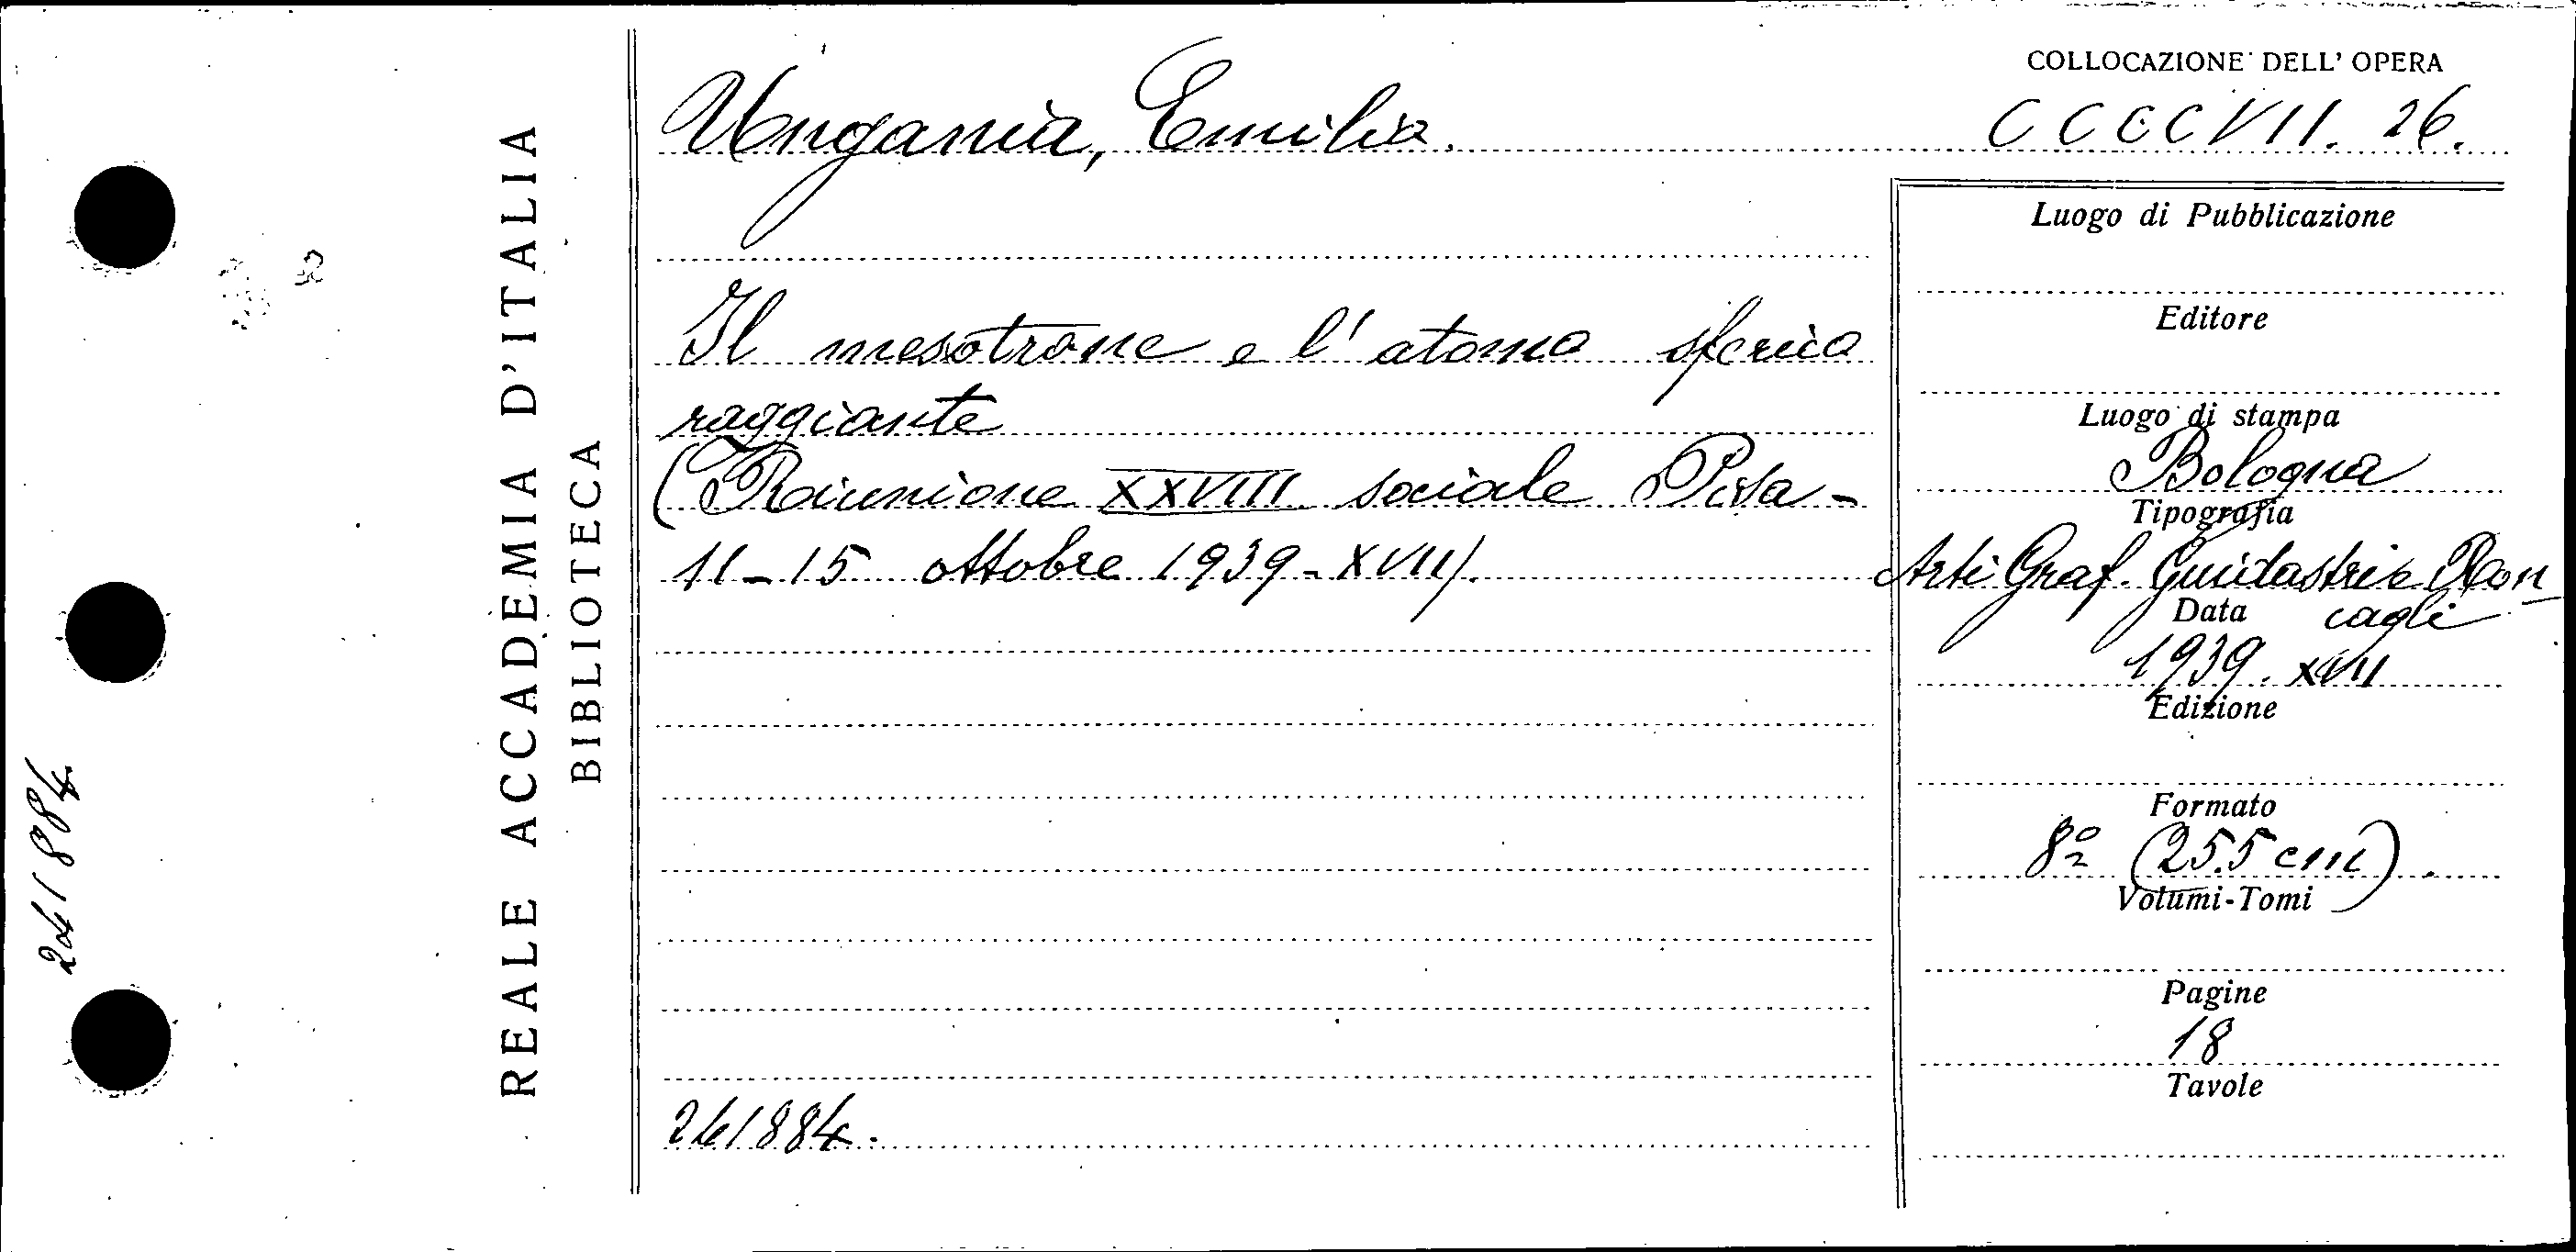 241884
REALE ACCADEMIA D'ITALIA
BIBLIOTECA
Ungania, Emilia.
Il mesotrone e l'atomo sferico
raggiante
(Riunione XXVIII sociale Pisa-
11-15 ottobre 1939-XVII).
241884.
COLLOCAZIONE DELL' OPERA
CCCCVII. 26.
Luogo di Pubblicazione
Editore
Luogo di stampa
Bologna
Tipografia
Arti Graf. Guidastri e Ron
cagli
Data
1939. XVII
Edizione
Formato
8º (25.5 cm).
Volumi-Tomi
Pagine
18
Tavole